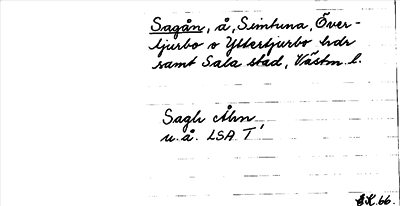 Sagån, å, Simtuna, Över-
tjurbo o Yttertjurbo hrdr
samt Sala stad, Västm. l.
Sagh Ålm
u.å. LSA T
E.K. 66.